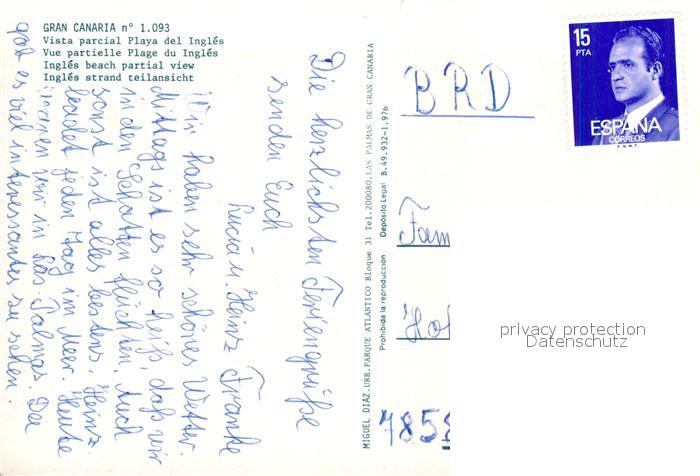 GRAN CANARIA n° 1.093
Vista parcial Playa del Inglés
Vue partielle Plage du Inglés
Inglés beach partial view
Inglés strand teilansicht
Die herzlichsten Feriengrüße
senden Euch
Lucia u. Heinz Franke
Wir haben sehr schönes Wetter.
Mittags ist es so heiß, daß wir
in den Schatten flüchten. Auch
sonst ist alles bestens. Heinz
badet jeden Tag im Meer. Heute
waren wir in Las-Palmas. Da
gab es viel interessantes zu sehen.
MIGUEL DIAZ.URB.PARQUE ATLANTICO Bloque 31 Tel.200080.LAS PALMAS DE GRAN CANARIA
Prohibida la reproducción Depósito Legal B.49.932-1.976
15
PTA
ESPAÑA
CORREOS
F.N.M.T.
BRD
Fam
Ho
7858
privacy protection
Datenschutz